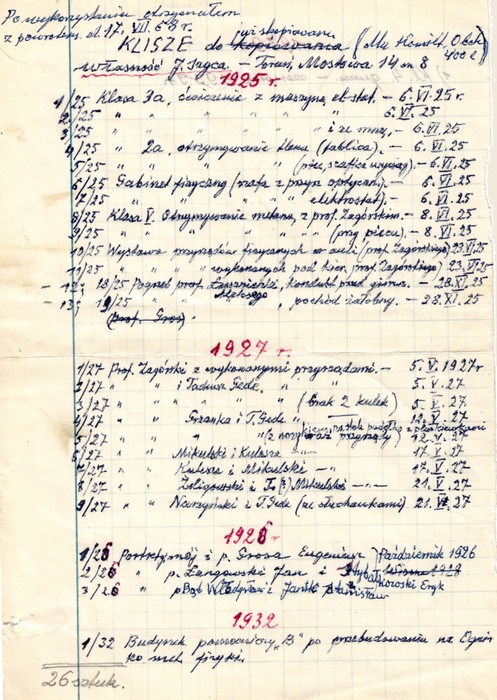 Po wykorzystaniu otrzymałem
z powrotem d. 17. VII. 68 r.
wyi skopiowania
KLISZE do kopiowania (Mu Homilt. Obek
400 zł)
Własność J. Szyca. – Toruń, Mostowa 14 m 8
1925 r.
1/25 Klasa 3a, ćwiczenie z maszyną el-stat. – 6. VI. 25 r.
2/25 " " " " " – 6. VI. 25
3/25 " " " " i ze mną, – 6. VI. 25
4/25 " 2a otrzymywanie tlenu (tablica). – 6. VI. 25
5/25 " " " " (piec, szafka wyciąg) – 6. VI. 25
6/25 Gabinet fizyczny (szafa z przyr. optyczn). – 6. VI. 25
7/25 " " " elektrostat). – 6. VI. 25
8/25 Klasa V. Otrzymywanie metanu, z prof. Zagórskim. – 8. VI. 25
9/25 " " " " (przy piecu). – 8. VI. 25
10/25 Wystawa przyrządów fizycznych w auli (prof. Zagórskiego) 23. VI. 25
11/25 " " " wykonanych pod kier. prof. Zagórskiego) 23. VI. 25
– 12; 18/25 Pogrzeb prof. kondukt przed gimn. – 28. XI. 25
– 13; 19/25 " " , pochód żałobny. – 28. XI. 25
(prof. Gros).
1927 r.
1/27 Prof. Zagórski z wykonanymi przyrządami. – 5. V. 1927 r
2/27 " " i Tadeusz Gede, " 5. V. 27
3/27 " " " " (brak 2 kulek) 5. V. 27
4/27 " " Grzanka i T. Gede " 12. V. 27
5/27 " " " " 12. V. 27
6/27 " " Mikulski i Kulesza –"– 17. V. 27
7/27 " " Kulesza i Mikulski –"– 17. V. 27
8/27 " " Żoligowski i T. (?) Mikulski –"– 21. V. 27
9/27 " " Narzyński i T. Gede (ze słuchawkami) 21. VI. 27
1926 r
1/26 Portret mój i p. Grosa Eugeniusz) Październik 1926
2/26 " p. Langowski Jan i
3/26 " p Bąk Władysław i Janttk Stanisław Eryk
1932
1/32 Budynek pomocniczy „B" po przebudowaniu na Ognis
ko nauk fizyki.
26 sztuk.